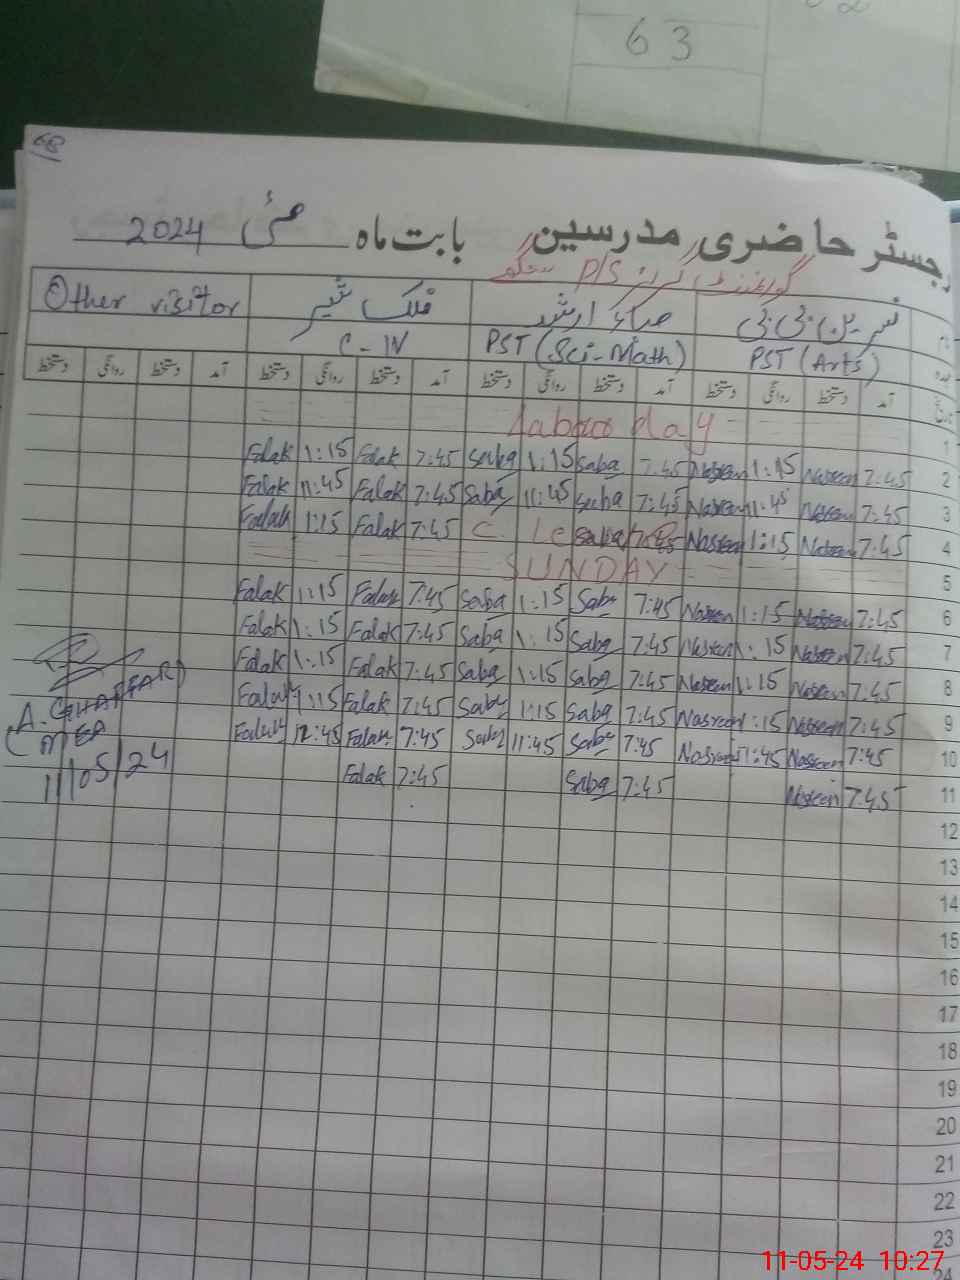 63
68
رجسٹر حاضری مدرسین بابت ماہ مئی 2024
گورنمنٹ گرلز P/S
نسرین بی بی صباء ارشد فلک شیر Other visitor
PST (Arts) PST (Sci-Math) C-IV
تاریخ آمد دستخط روانگی دستخط آمد دستخط روانگی دستخط آمد دستخط روانگی دستخط آمد دستخط روانگی دستخط
1 Labour day
Falak 1:15 Falak 7:45 Saba 1:15 Saba 7:45 Nasreen 1:15 Nasreen 7:45 2
Falak 11:45 Falak 7:45 Saba 11:45 Saba 7:45 Nasreen 11:45 Nasreen 7:45 3
Falak 1:15 Falak 7:45 C. Leave Nasreen 1:15 Nasreen 7:45 4
SUNDAY 5
Falak 1:15 Falak 7:45 Saba 1:15 Saba 7:45 Nasreen 1:15 Nasreen 7:45 6
Falak 1:15 Falak 7:45 Saba 1:15 Saba 7:45 Nasreen 1:15 Nasreen 7:45 7
Falak 1:15 Falak 7:45 Saba 1:15 Saba 7:45 Nasreen 1:15 Nasreen 7:45 8
Falak 1:15 Falak 7:45 Saba 1:15 Saba 7:45 Nasreen 1:15 Nasreen 7:45 9
Falak 12:45 Falak 7:45 Saba 11:45 Saba 7:45 Nasreen 11:45 Nasreen 7:45 10
Falak 7:45 Saba 7:45 Nasreen 7:45 11
(A. GHAFFAR)
MEA
11/05/24
12
13
14
15
16
17
18
19
20
21
22
23
24
11-05-24 10:27